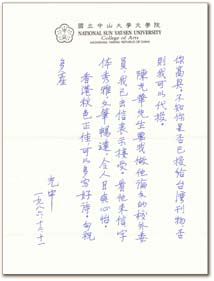 國立中山大學文學院
NATIONAL SUN YAT-SEN UNIVERSITY
College of Arts
KAOHSIUNG, TAIWAN, REPUBLIC OF CHINA
你高興，不知你是否已投給台灣刊物？否
則我可以代投。
陳先華先生要我做他論文的校外委
員，我已去信表示接受。看他來信字
体秀雅，文筆暢達，令人目爽心怡。
香港秋色正佳，可以多寫好詩。匆祝
多產
光中
一九八六、十、十一